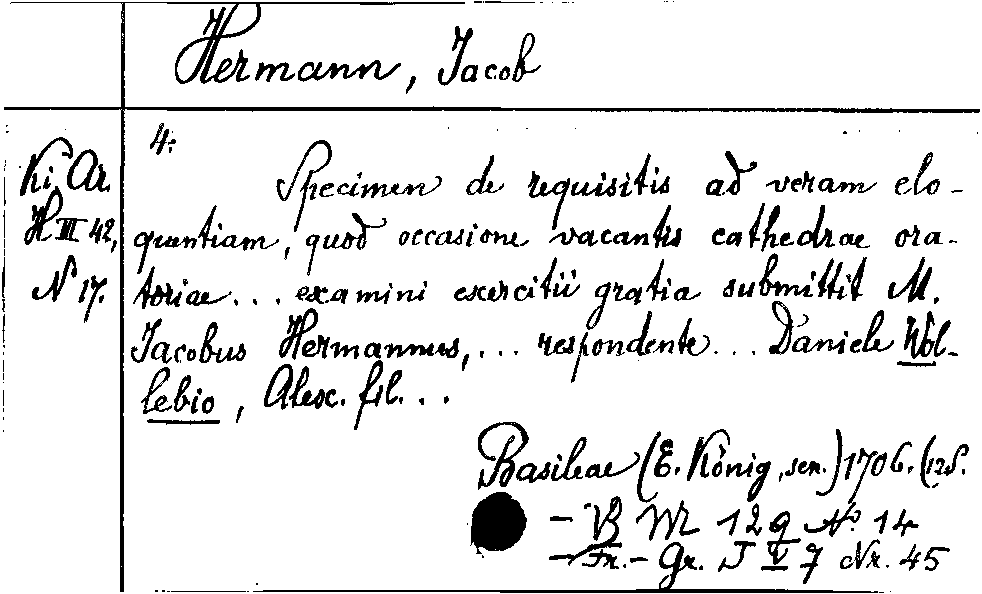 Hermann, Jacob
4.
Ki. Ar.
H III 42,
N° 17.
Specimen de requisitis ad veram elo-
quentiam, quod occasione vacantis cathedrae ora-
toriae... examini exercitii gratia submittit M.
Jacobus Hermannus,... respondente... Daniele Wol-
lebio, Alex. fil...
Basileae (E. König, sen.) 1706. (12S.
- VB M 12 q N° 14
- Fr.- Gr. J V 7 Nr. 45